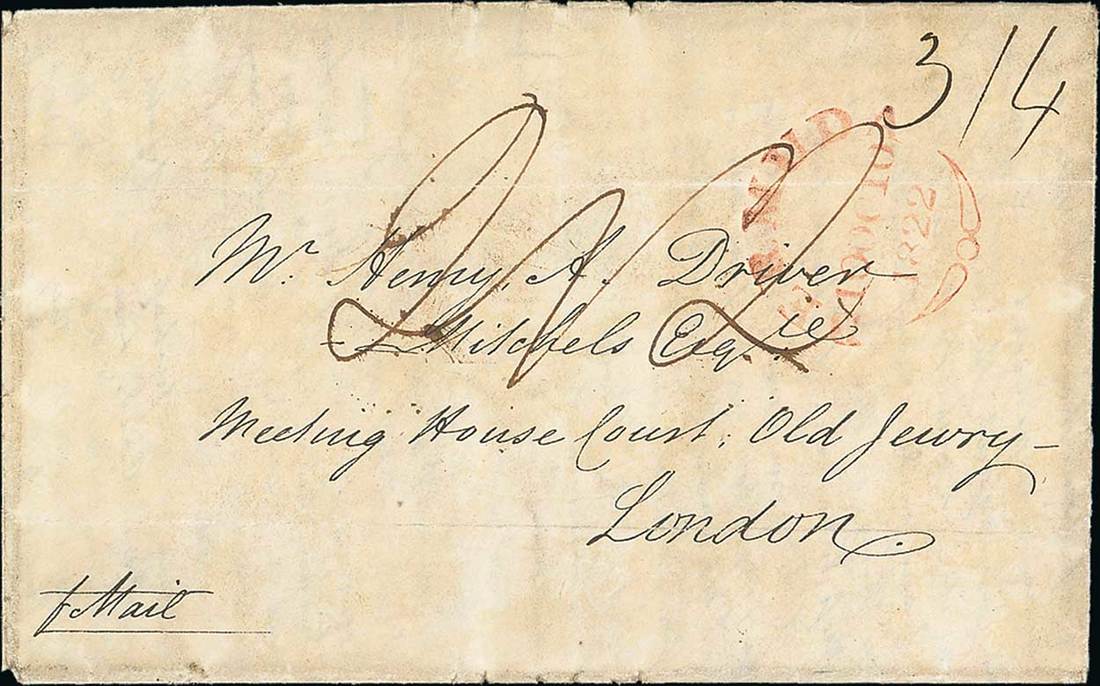 3/4
2/2
Mr. Henry, A. Driver
Mitchels Esqre
Meeting House Court; Old Jewry –
London.
OC 10
1822
p Mail